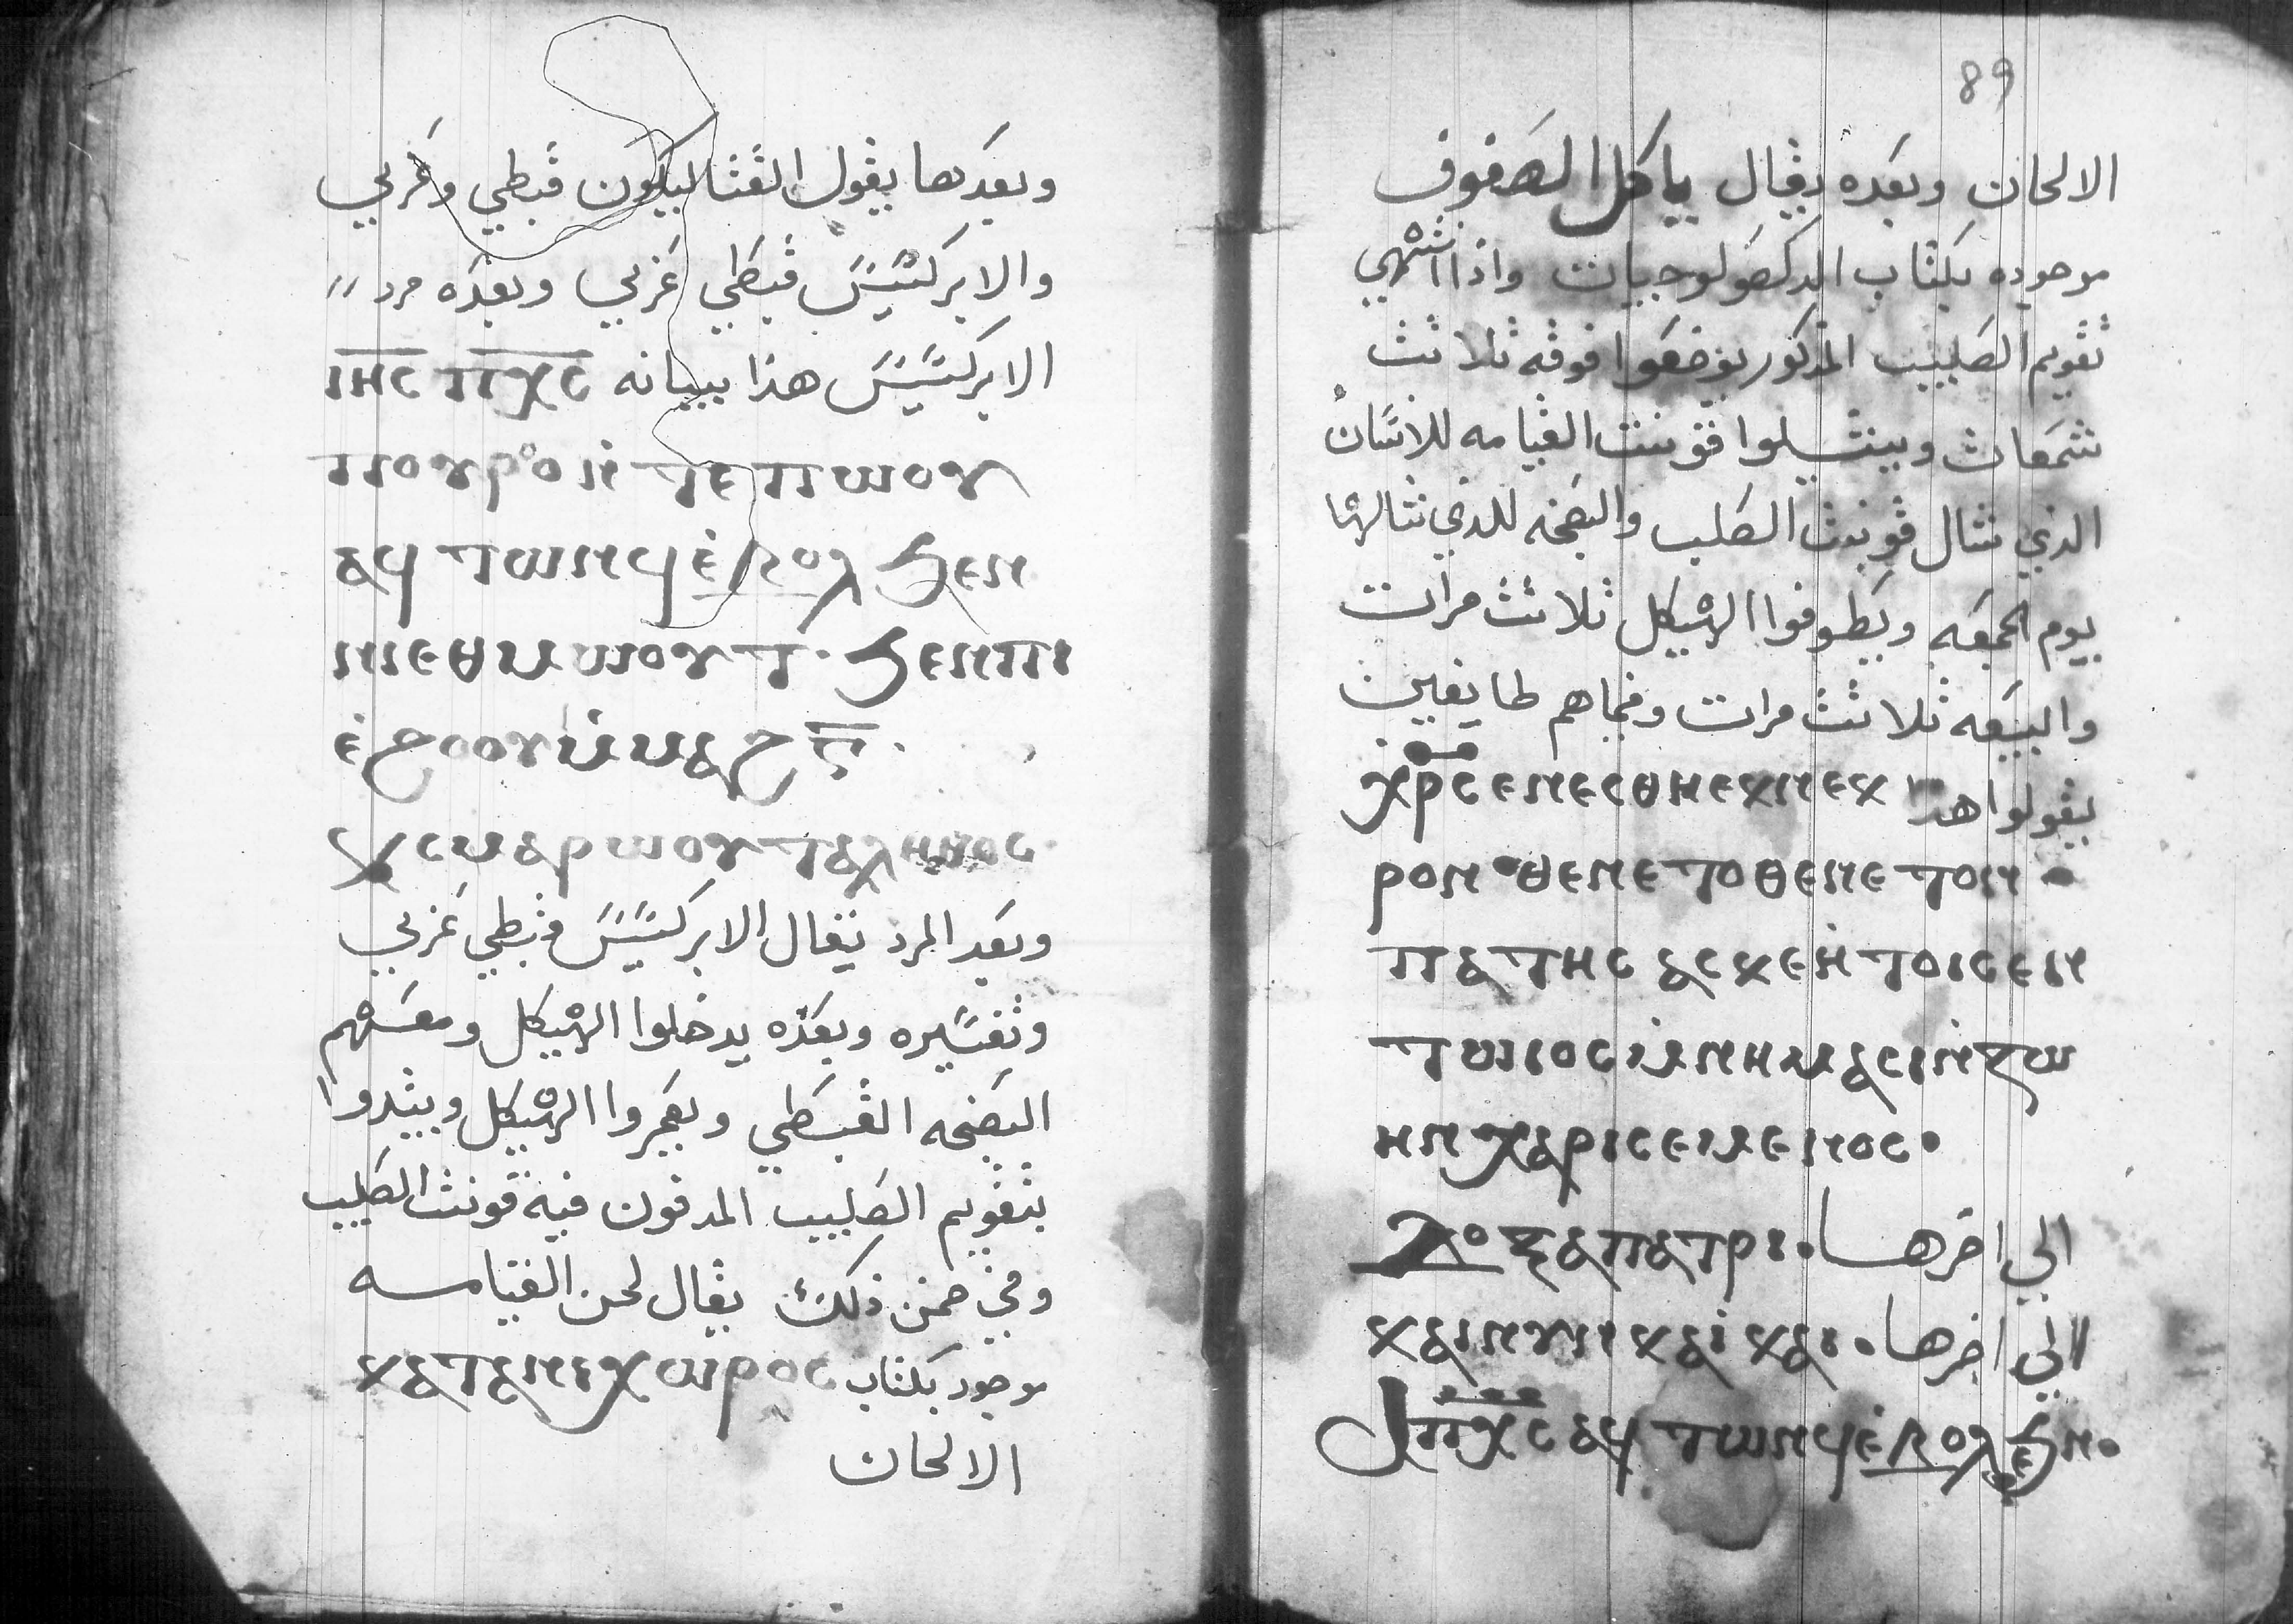 وبعدها يقول القثاليكون قبطي وعربي
والابركسيس قبطي عربي وبعده مرد
الابركسيس هذا بيانه ⲓⲏⲥ ⲡⲭⲥ
ⲡⲟⲩⲣⲟ ⲛ̀ⲧⲉ ⲡⲱⲟⲩ
ⲁϥ ⲧⲱⲛϥ ⲉ̀ⲃⲟⲗ ϧⲉⲛ
ⲛⲓⲉⲑⲙⲱⲟⲩⲧ· ϧⲉⲛ ⲡⲓ
ⲉ̀ϩⲟⲟⲩ ⲙ̀ⲙⲁϩ ⲅ̅·
ⲭⲥⲙⲁⲣⲱⲟⲩⲧ ⲁⲗⲏⲑⲟⲥ·
وبعد المرد يقال الابركسيس قبطي عربي
وتفسيره وبعده يدخلوا الهيكل ومعهم
البضخه القبطي ويعمروا الهيكل ويبتدوا
بتقويم الصليب المدفون فيه قونت الصليب
وفي ضمن ذلك يقال لحن القيامه
موجود بكتاب ⲕⲁⲧⲁⲛⲓⲭⲱⲣⲟⲥ
الالحان
89
الالحان وبعده يقال ياكل الصفوف
موجوده بكتاب الدكصولوجيات واذا انتهي
تقويم الصليب المذكور يوضعوا فوقه ثلاثت
شمعات وينشلوا قونت القيامه للانسان
الذي شال قونت الصليب والبضخه للذي شالها
يوم الجمعه ويطوفوا الهيكل ثلاثت مرات
والبيعه ثلاثت مرات وفيماهم طايفين
يقولوا هذا ⲭⲣⲥ ⲉⲛⲉⲥⲑⲏ ⲉⲕⲛⲉⲕ
ⲣⲟⲛ· ⲑⲉⲛⲉⲧⲟ ⲑⲉⲛⲉⲧⲟⲛ·
ⲡⲁⲧⲏⲥ ⲁⲥ ⲕⲉⲛ̀ ⲧⲟⲓⲥ ⲉⲛ
ⲧⲱⲓⲟⲥ ⲓ̀ⲙⲛⲏⲙⲁⲥⲓⲛ̀ ⲍⲱ
ⲏⲛ ⲭⲁⲣⲓⲥ ⲉⲓⲙⲉⲛⲟⲥ·
ⲇⲟⲝⲁⲡⲁⲧⲣⲓ· الي اخرها
ⲕⲁⲓⲛⲩⲛ ⲕⲁⲓ̀ ⲕⲁⲓ· الي اخرها
ⲡⲭⲥ ⲁϥ ⲧⲱⲛϥ ⲉ̀ⲃⲟⲗ ϧⲉⲛ·